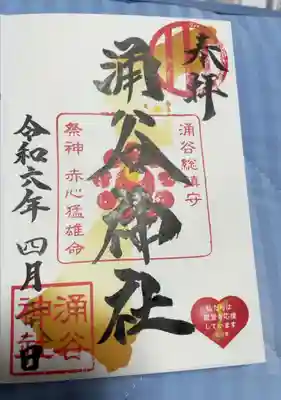 奉拝
涌谷総鎮守
涌谷神社
祭神 赤心猛雄命
令和六年 四月 日
涌谷
神社
私たちは
能登を応援
しています